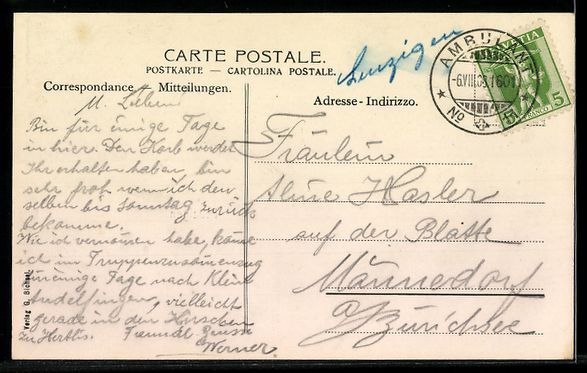 CARTE POSTALE.
POSTKARTE — CARTOLINA POSTALE.
Correspondance • Mitteilungen.
Adresse - Indirizzo.
Lenzigen
AMBULANT
-6.VIII.09.1601
No
HELVETIA
FRANCO 5
M. Lieben
Bin für einige Tage
in hier. Den Korb werdet
Ihr erhalten haben, bin
sehr froh wenn ich den
selben bis Sonntag zurück
bekomme.
Wie ich vernommen habe, käme
ich im Truppenzusammenzug
einige Tage nach Klein
Andelfingen, vielleicht
gerade in den
Freundl. Grüsse
Werner.
Fräulein
Aline Hasler
auf der Blatte
Männedorf
a/Zürichsee
Verlag G.